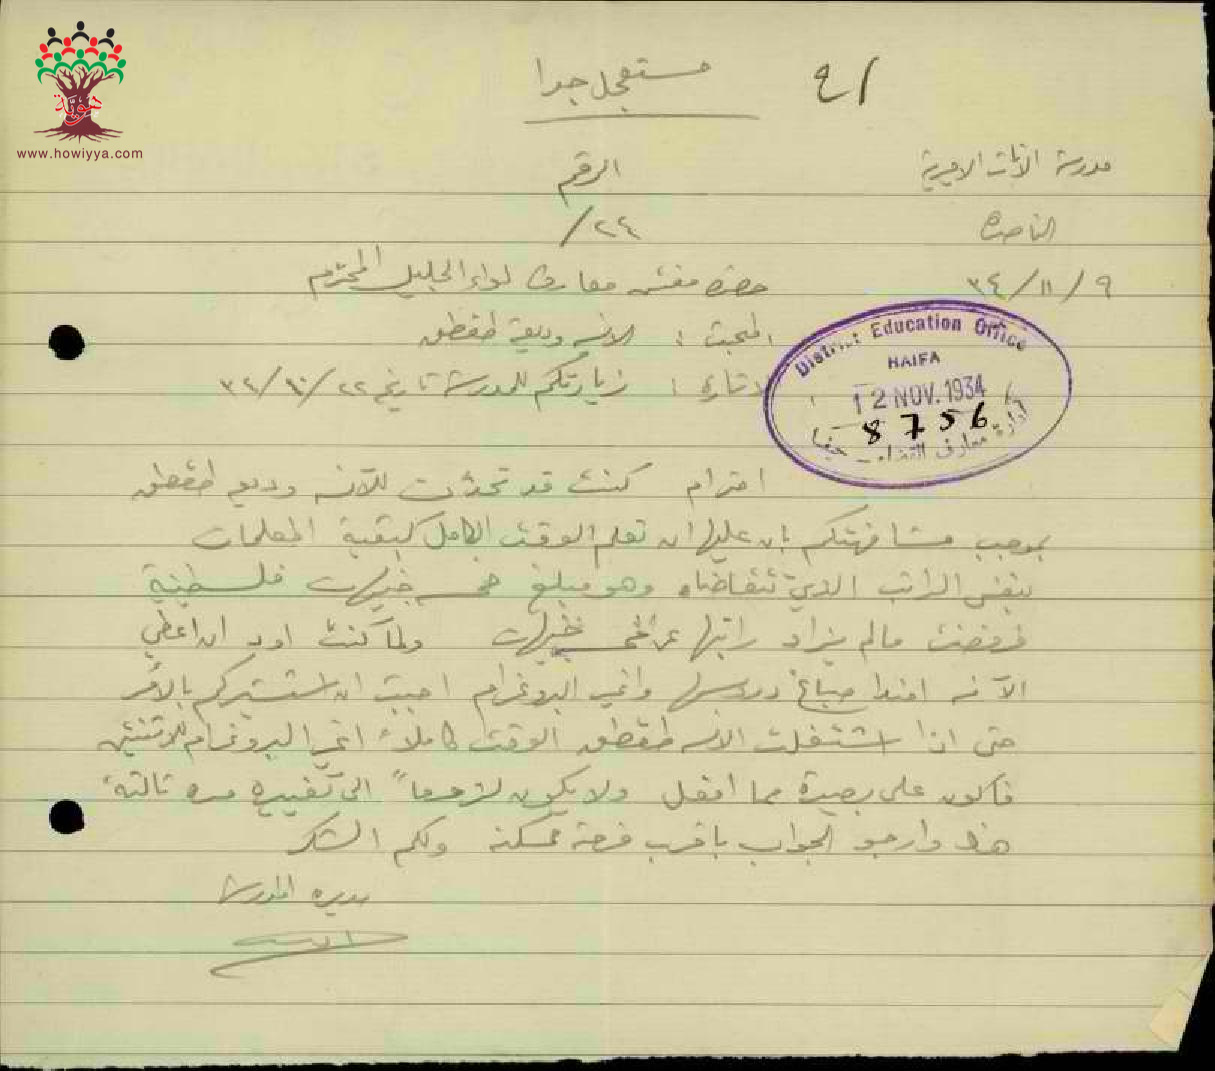 هوية
www.howiyya.com
مستعجل جدا
مدرسة الاناث الاميرية
الرقم
الناصرة
٢٤/
٩/١١/٣٤
حضرة مفتش معارف لواء الجليل المحترم
المبحث : الانسه وديعة طقطق
الاشارة : زيارتكم للمدرسة تاريخ ٢٢/١٠/٣٤
District Education Office
HAIFA
12 NOV. 1934
8756
ادارة معارف القضاء حيفا
احترام كنت قد تحدثت للآنسه وديعه طقطق
بموجب مشافهتكم بان عليها ان تعلم الوقت الكامل كبقية المعلمات
بنفس الراتب الذي تتقاضاه وهو مبلغ خمسه جنيهات فلسطينية
فرفضت مالم يزاد راتبها عن الخمسه جنيهات ولما كنت اود ان اعطي
الآنسه صباغ دروسها واغير البروغرام احببت ان استشيركم بالأمر
حتى اذا اشتغلت الانسه طقطق الوقت كاملاً اغير البروغرام للاثنتين
فأكون على بصيرة مما افعل ولا يكون لزوماً الى تغييره مره ثالثة
هذا وارجو الجواب باقرب فرصة ممكنه ولكم الشكر
مديره المدرسة